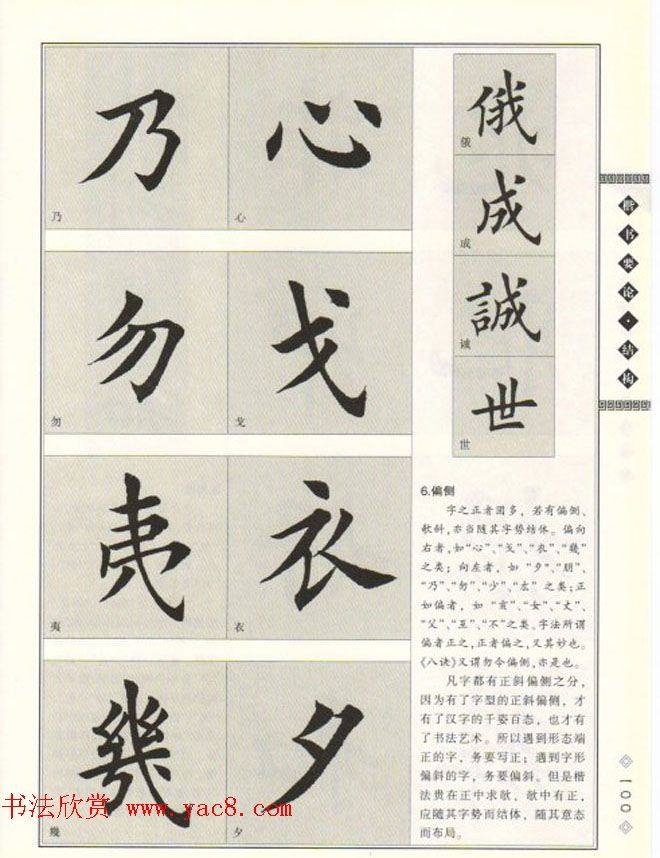 乃 心
乃 心
勿 戈
勿 戈
夷 衣
夷 衣
幾 夕
幾 夕
俄
俄
成
成
誠
诚
世
世
6.偏侧
字之正者固多，若有偏侧、
欹斜,亦当随其字势结体。偏向
右者,如“心”、“戈”、“衣”、“幾”
之类；向左者，如“夕”、“朋”、
“乃”、“勿”、“少”、“厷”之类;正
如偏者，如“亥”、“女”、“丈”、
“父”、“互”、“不”之类。字法所谓
偏者正之,正者偏之，又其妙也。
《八诀》又谓勿令偏侧,亦是也。
凡字都有正斜偏侧之分，
因为有了字型的正斜偏侧，才
有了汉字的千姿百态，也才有
了书法艺术。所以遇到形态端
正的字，务要写正；遇到字形
偏斜的字，务要偏斜。但是楷
法贵在正中求欹，欹中有正，
应随其字势而结体，随其意态
而布局。
楷书要论·结构
一〇〇
书法欣赏 www.yac8.com